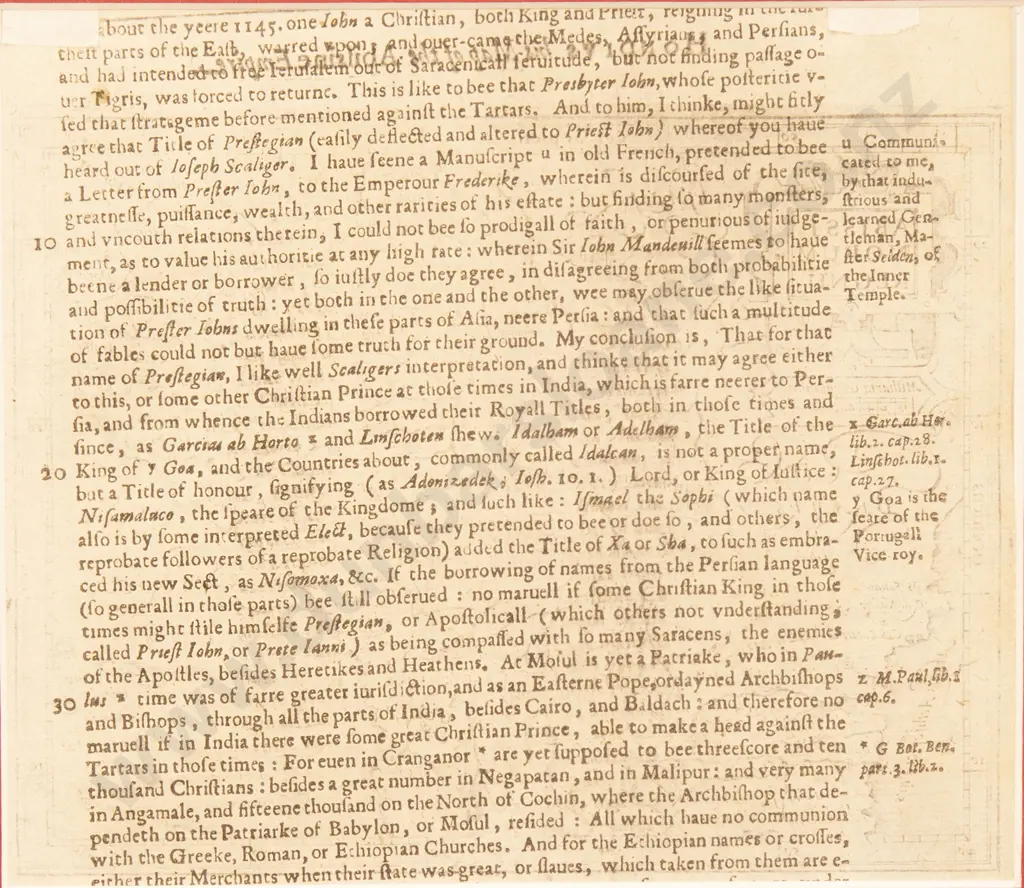 bout the yeere 1145. one Iohn a Christian, both King and Priest, reigning in the fur-
thest parts of the East, warred vpon, and ouer-came the Medes, Assyrians, and Persians,
and had intended to free Ierusalem out of Saracenicall seruitude, but not finding passage o-
uer Tigris, was forced to returne. This is like to bee that Presbyter Iohn, whose posteritie v-
sed that stratageme before mentioned against the Tartars. And to him, I thinke, might fitly
agree that Title of Prestegian (easily deflected and altered to Priest Iohn) whereof you haue
heard out of Ioseph Scaliger. I haue seene a Manuscript u in old French, pretended to bee
a Letter from Prester Iohn, to the Emperour Frederike, wherein is discoursed of the site,
greatnesse, puissance, wealth, and other rarities of his estate: but finding so many monsters,
10 and vncouth relations therein, I could not bee so prodigall of faith, or penurious of iudge-
ment, as to value his authoritie at any high rate: wherein Sir Iohn Mandeuill seemes to haue
beene a lender or borrower, so iustly doe they agree, in disagreeing from both probabilitie
and possibilitie of truth: yet both in the one and the other, wee may obserue the like situa-
tion of Prester Iohns dwelling in these parts of Asia, neere Persia: and that such a multitude
of fables could not but haue some truth for their ground. My conclusion is, That for that
name of Prestegian, I like well Scaligers interpretation, and thinke that it may agree either
to this, or some other Christian Prince at those times in India, which is farre neerer to Per-
sia, and from whence the Indians borrowed their Royall Titles, both in those times and
since, as Garcias ab Horto x and Linschoten shew. Idalham or Adelham, the Title of the
20 King of y Goa, and the Countries about, commonly called Idalcan, is not a proper name,
but a Title of honour, signifying (as Adonizedek; Iosh. 10. 1.) Lord, or King of Iustice:
Nisamaluco, the speare of the Kingdome; and such like: Ismael the Sophi (which name
also is by some interpreted Elect, because they pretended to bee or doe so, and others, the
reprobate followers of a reprobate Religion) added the Title of Xa or Sha, to such as embra-
ced his new Sect, as Nisomoxa, &c. If the borrowing of names from the Persian language
(so generall in those parts) bee still obserued: no maruell if some Christian King in those
times might stile himselfe Prestegian, or Apostolicall (which others not vnderstanding,
called Priest Iohn, or Prete Ianni) as being compassed with so many Saracens, the enemies
of the Apostles, besides Heretikes and Heathens. At Mosul is yet a Patriake, who in Pau-
30 lus z time was of farre greater iurisdiction, and as an Easterne Pope, ordayned Archbishops
and Bishops, through all the parts of India, besides Cairo, and Baldach: and therefore no
maruell if in India there were some great Christian Prince, able to make a head against the
Tartars in those times: For euen in Cranganor * are yet supposed to bee threescore and ten
thousand Christians: besides a great number in Negapatan, and in Malipur: and very many
in Angamale, and fifteene thousand on the North of Cochin, where the Archbishop that de-
pendeth on the Patriarke of Babylon, or Mosul, resided: All which haue no communion
with the Greeke, Roman, or Ethiopian Churches. And for the Ethiopian names or crosses,
either their Merchants when their state was great, or slaues, which taken from them are e-
u Communi-
cated to me,
by that indu-
strious and
learned Gen-
tleman, Ma-
ster Selden, of
the Inner
Temple.
x Garc. ab Hor.
lib. 2. cap. 28.
Linschot. lib. 1.
cap. 27.
y Goa is the
seate of the
Portugall
Vice roy.
z M. Paul, lib. 1
cap. 6.
* G Bot. Ben.
part. 3. lib. 2.